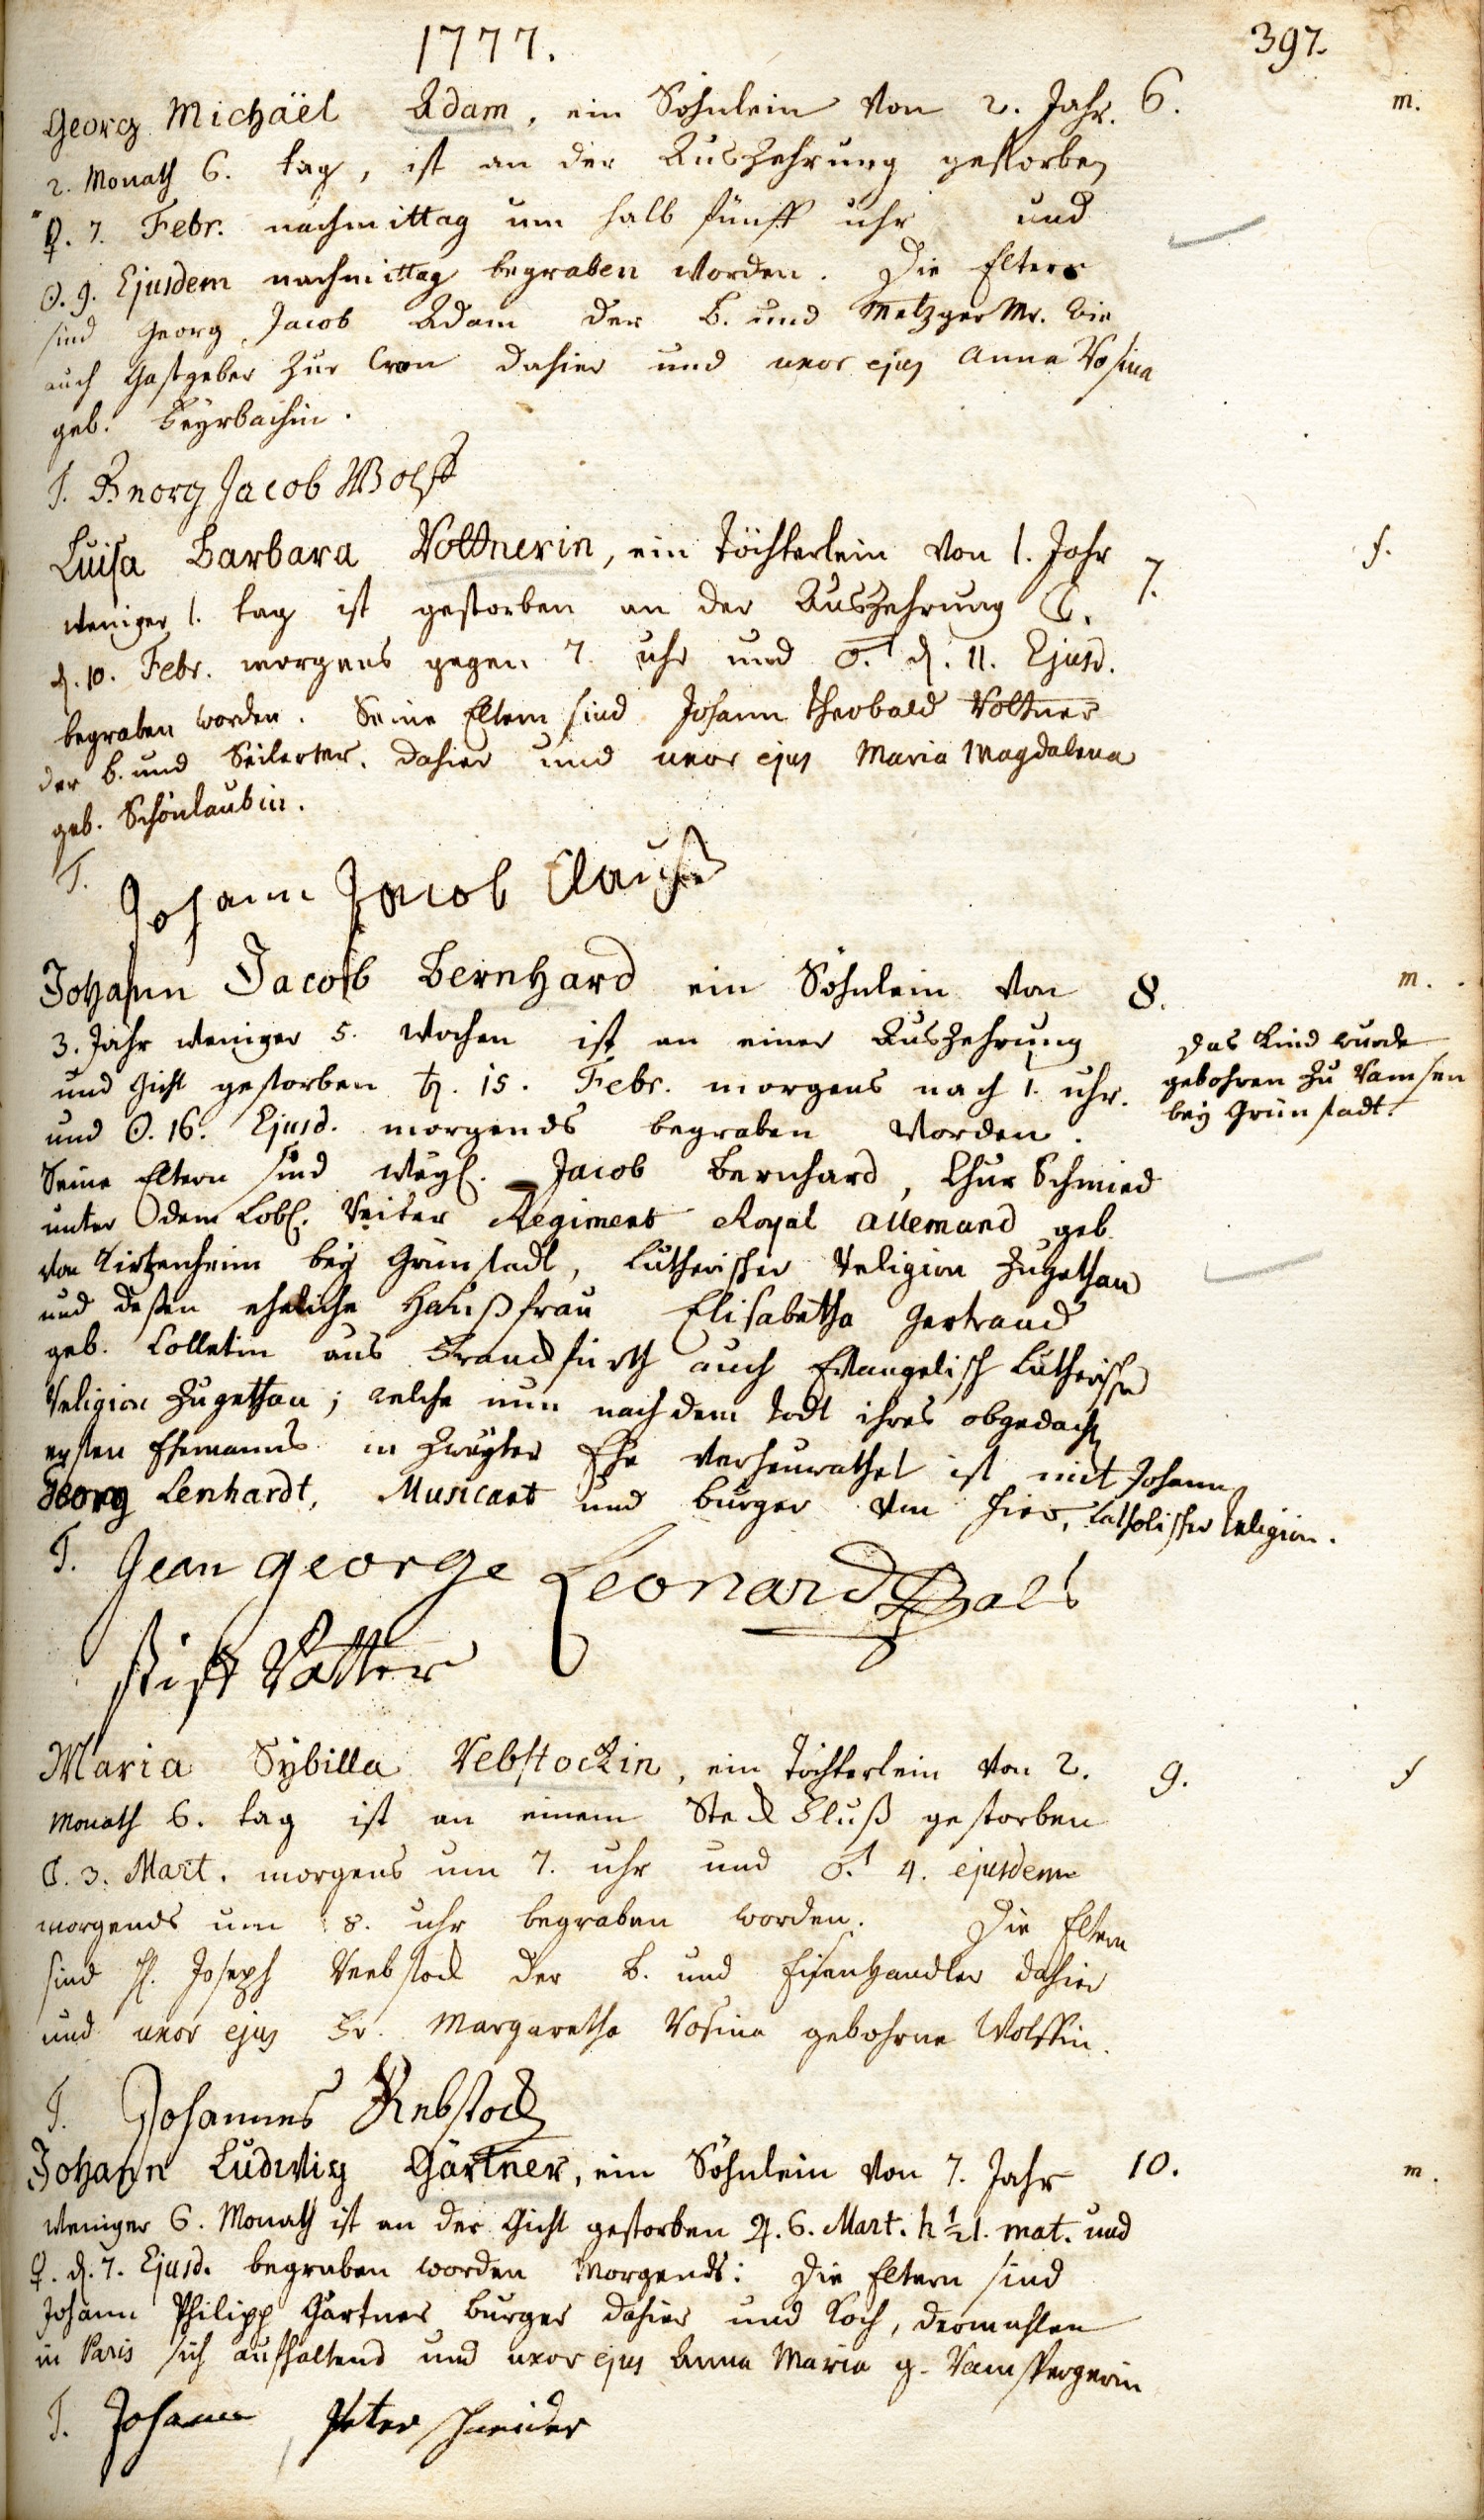 1777.
397.
Georg Michäel Adam, ein Söhnlein von 2. Jahr. 6. m.
2. Monath 6. tag, ist an der Auszehrung gestorben
♀. 7. Febr. nachmittag um halb fünff uhr und
☉. 9. Ejusdem nachmittag begraben worden. Die Eltern
sind Georg Jacob Adam der B. und Metzger Mr. wie
auch Gastgeber zur Cron dahier und uxor ejus Anna Rosina
geb. Beyrbachin.
T. Georg Jacob Wolff
Luisa Barbara Voltnerin, ein Töchterlein von 1. Jahr 7. f.
weniger 1. tag ist gestorben an der Auszehrung ☾.
d. 10. Febr. morgens gegen 7. uhr und ♂. d. 11. Ejusd.
begraben worden. Seine Eltern sind Johann Theobald Voltner
der B. und Seilermr. dahier und uxor ejus Maria Magdalena
geb. Schönlaubin.
T. Johann Jacob Clauss
Johann Jacob Bernhard ein Söhnlein von 8. m.
3. Jahr weniger 5. wochen ist an einer Auszehrung
und Gicht gestorben ♄. 15. Febr. morgens nach 1. uhr.
und ☉. 16. Ejusd. morgends begraben worden.
Das Kind wurde
gebohren zu Ramsen
bey Grünstadt.
Seine Eltern sind weyl. Jacob Bernhard, Chur Schmied
unter dem Lobl. Reiter Regiment Royal Allemand geb.
von Kirzenheim bey Grünstadt, Lutherischer Religion zugethan
und deßen eheliche Haußfrau Elisabetha Gertraud
geb. Colletin aus Franckfurth auch Evangelisch Lutherischer
Religion zugethan; welche nun nach dem todt ihres obgedacht
ersten Ehemanns in zweyter Ehe verheurathet ist mit Johann
Georg Lenhardt, Musicant und burger von hier, Catholischer Religion.
T. Jean george Leonard Bals
stiff Vatter
Maria Sybilla Rebstockin, ein Töchterlein von 2. 9. f
Monath 6. tag ist an einem Steckfluß gestorben
☾. 3. Mart. morgens um 7. uhr und ♂. 4. ejusdem
morgends um 8. uhr begraben worden. Die Eltern
sind H. Joseph Reebstock der B. und Eisenhandler dahier
und uxor ejus Fr. Margaretha Rosina gebohrne Wolffin.
T. Johannes Rebstock
Johann Ludwig Gärtner, ein Söhnlein von 7. Jahr 10. m.
weniger 6. Monath ist an der Gicht gestorben ♃. 6. Mart. h ½ 1. mat. und
♀. d. 7. Ejusd. begraben worden Morgends: Die Eltern sind
Johann Philipp Gärtner burger dahier und Koch, dermahlen
in Paris sich aufhaltend und uxor ejus Anna Maria g. Ramspergerin
T. Johann Peter schneider